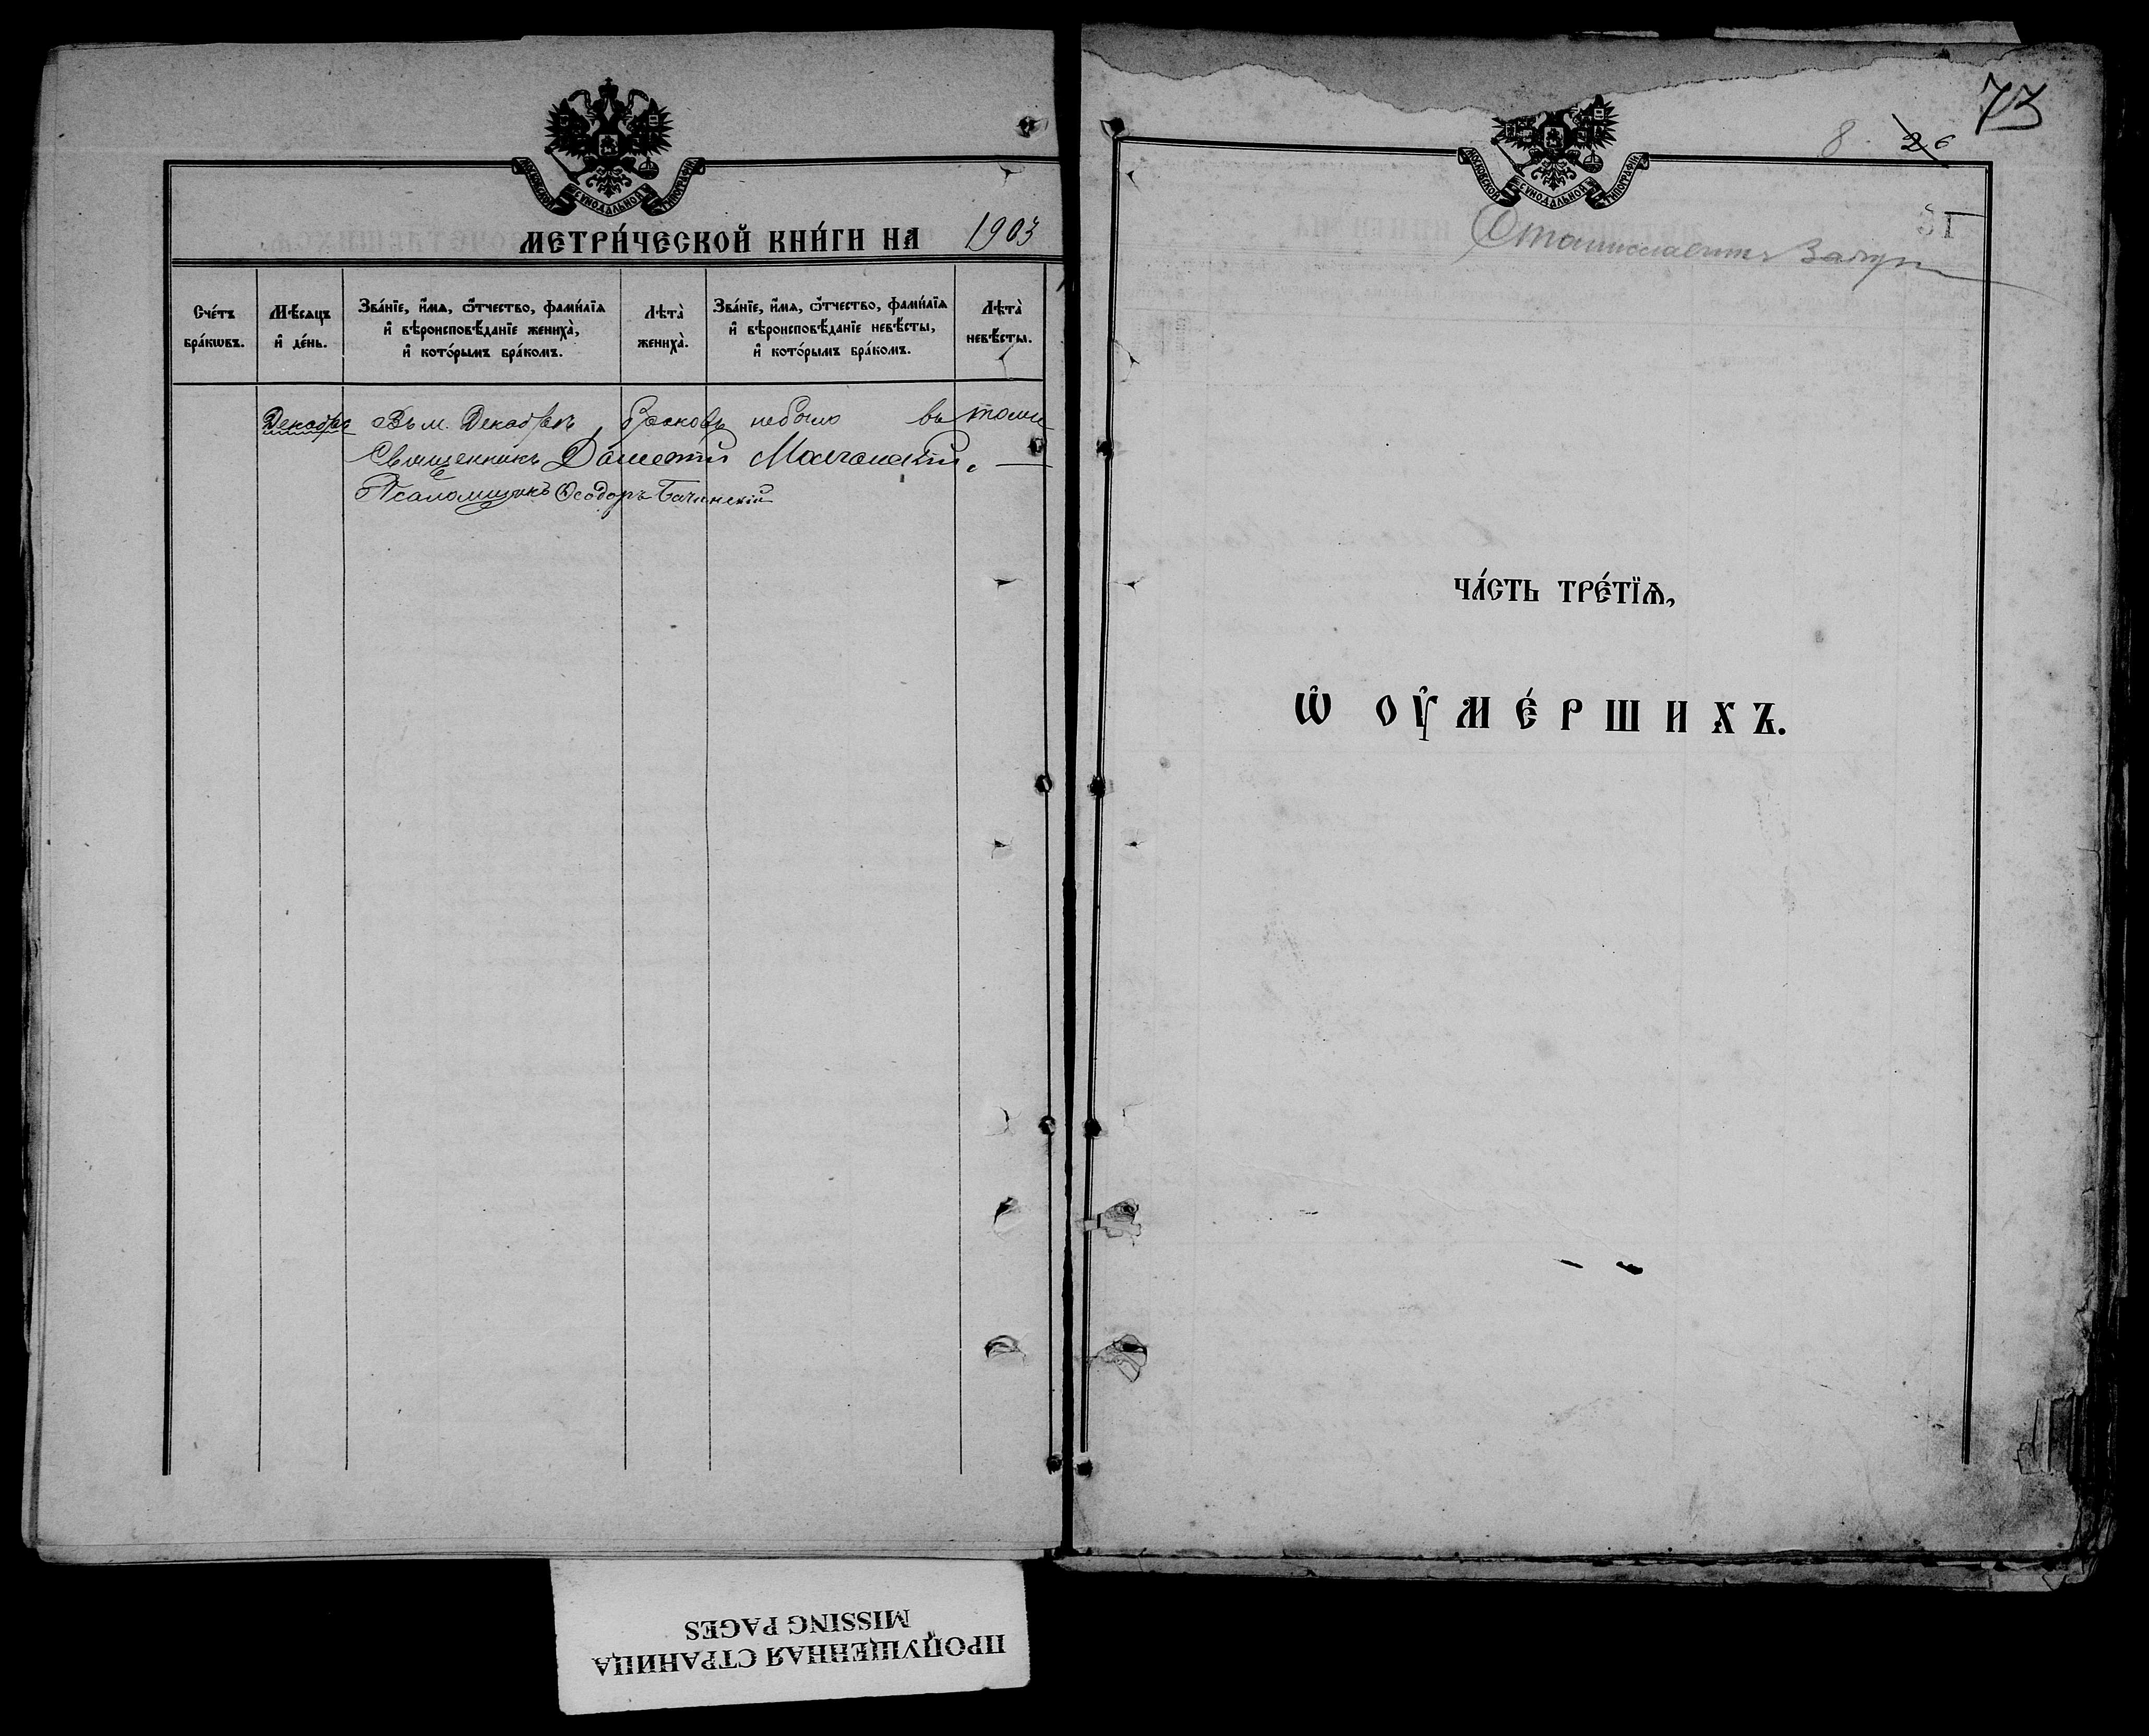 МОСКОВСКОЙ СѴНОДАЛЬНОЙ ТИПОГРАФІИ
МЕТРИ́ЧЕСКОЙ КНИ́ГИ НА 1903
Сче́тъ бра́кѡвъ.
Мѣ́сяцъ и҆ де́нь.
Зва́нїе, и҆́мѧ, ѻ҆́тчество, фами́лїѧ
и҆ вѣроисповѣ́данїе жениха̀,
и҆ кото́рымъ бра́комъ.
Лѣта̀ жениха̀.
Зва́нїе, и҆́мѧ, ѻ҆́тчество, фами́лїѧ
и҆ вѣроисповѣ́данїе невѣ́сты,
и҆ кото́рымъ бра́комъ.
Лѣта̀ невѣ́сты.
Декабрь Въ м. Декабрѣ браковъ небыло
Священникъ
Псаломщикъ Ѳеодоръ Бачинскій
73
8 26
МОСКОВСКОЙ СѴНОДАЛЬНОЙ ТИПОГРАФІИ
ЧА́СТЬ ТРЕ́ТЇѦ,
Ѡ҆ ОУ҆МЕ́РШИХЪ.
ПРОПУЩЕННАЯ СТРАНИЦА
MISSING PAGES